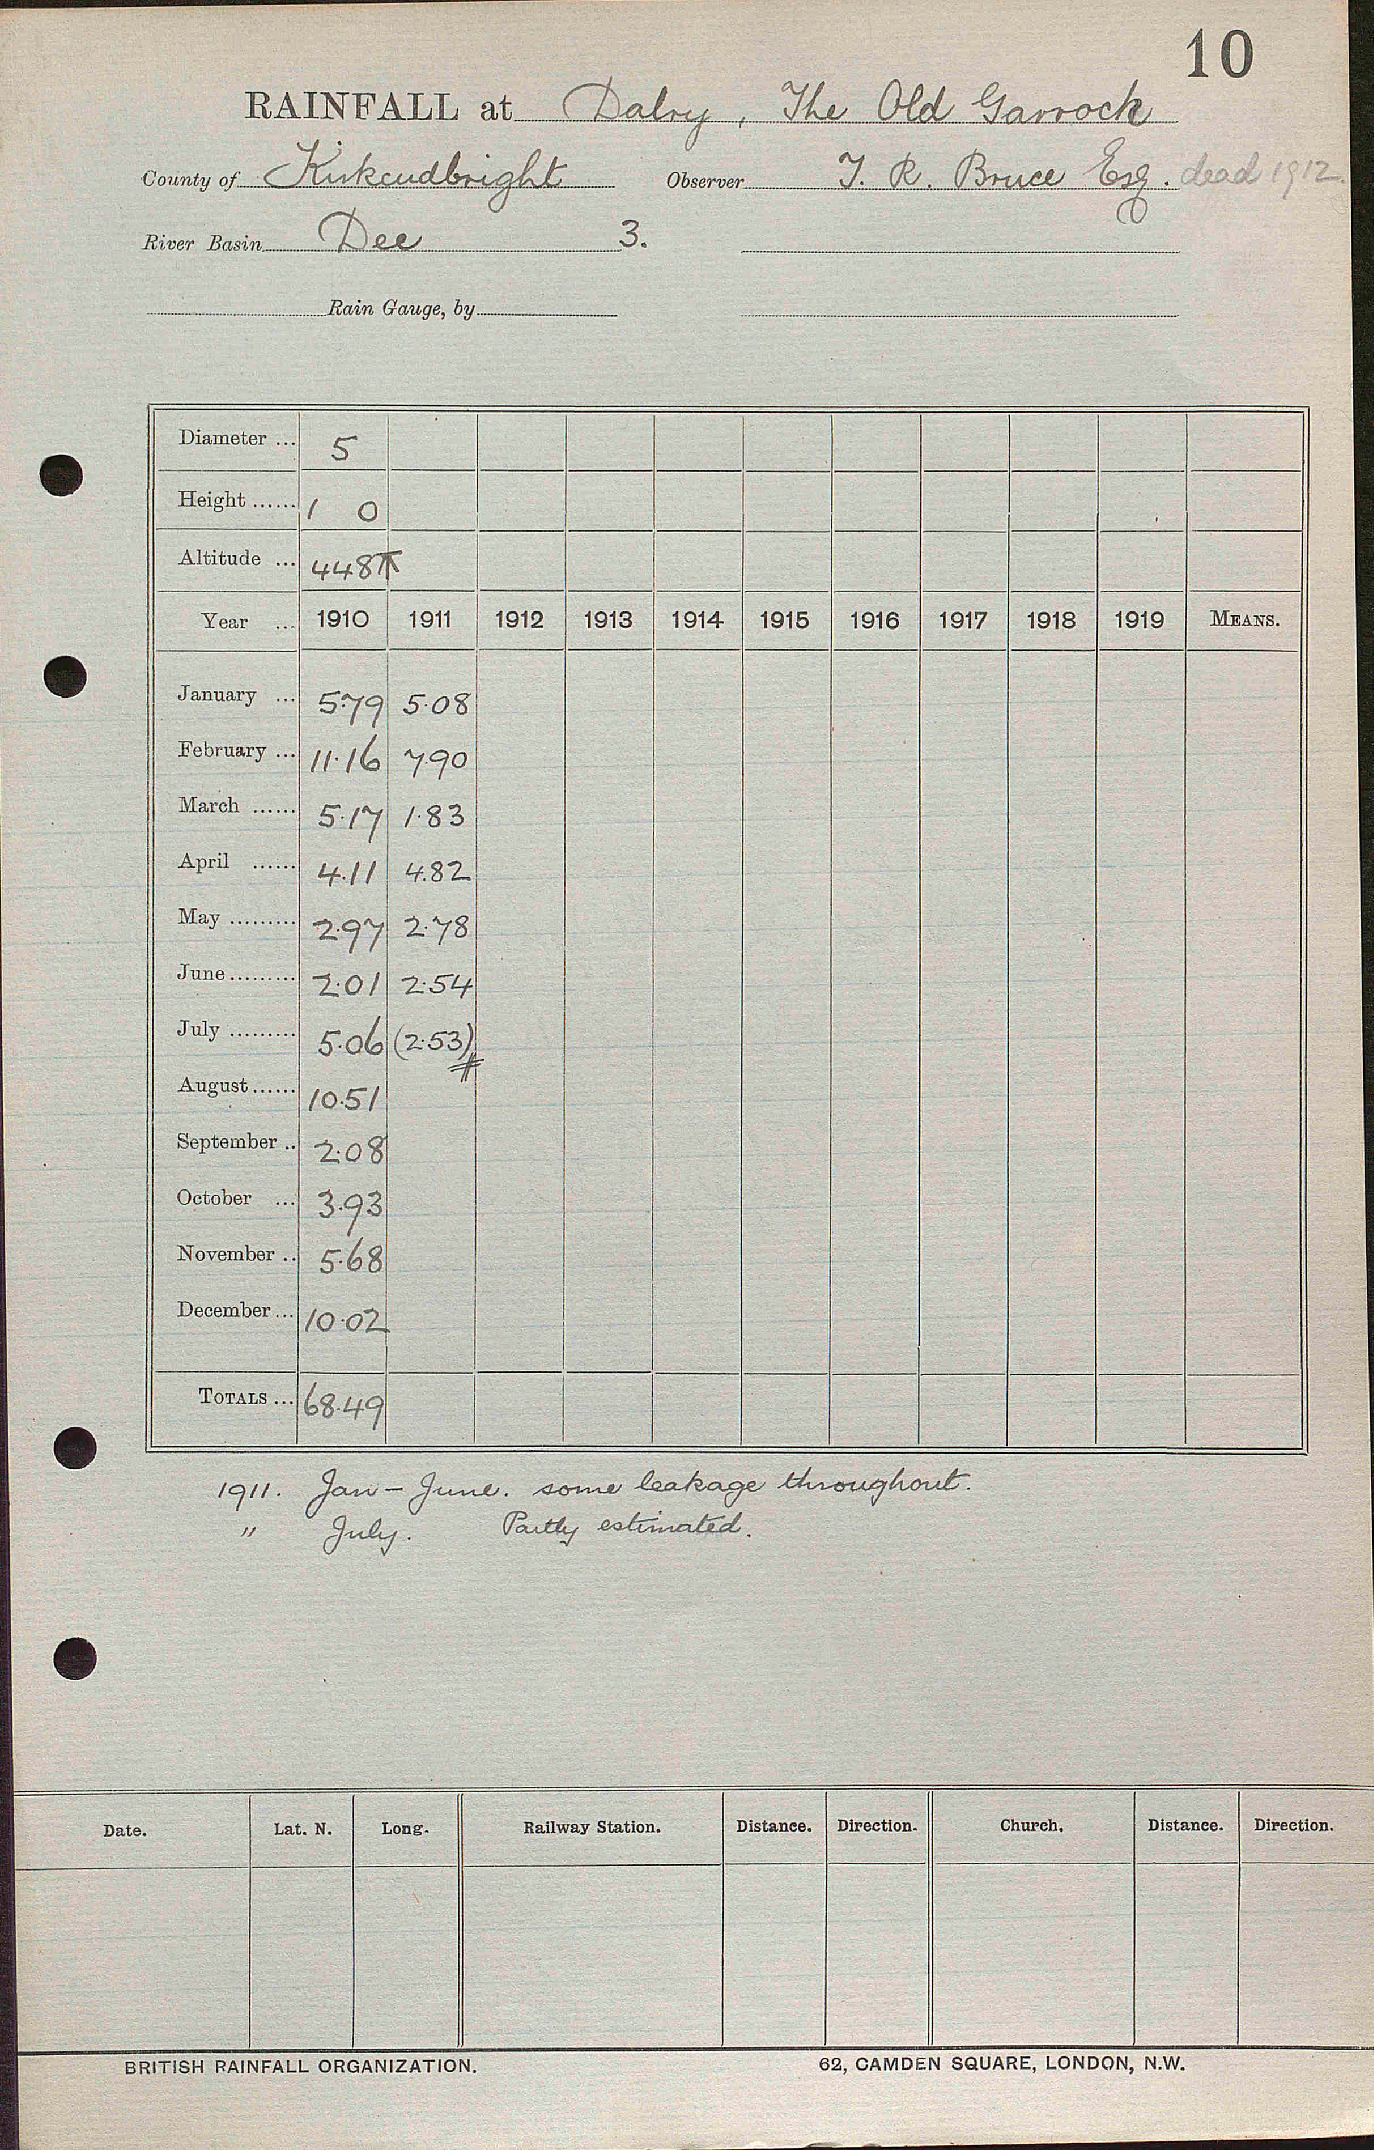 10
RAINFALL at Dalry, The Old Garroch
County of Kirkcudbright Observer T. R. Bruce Esq. dead 1912.
River Basin Dee 3.
Rain Gauge, by
Diameter ... 5
Height ...... 1 0
Altitude ... 448T
Year ... 1910 1911 1912 1913 1914 1915 1916 1917 1918 1919 MEANS.
January ... 5.79 5.08
February ... 11.16 7.90
March ...... 5.17 1.83
April ...... 4.11 4.82
May ......... 2.97 2.78
June ......... 2.01 2.54
July ......... 5.06 (2.53) #
August ...... 10.51
September .. 2.08
October ... 3.93
November .. 5.68
December ... 10.02
TOTALS ... 68.49
1911. Jan – June. some leakage throughout.
" July. Partly estimated.
Date. Lat. N. Long. Railway Station. Distance. Direction. Church. Distance. Direction.
BRITISH RAINFALL ORGANIZATION. 62, CAMDEN SQUARE, LONDON, N.W.